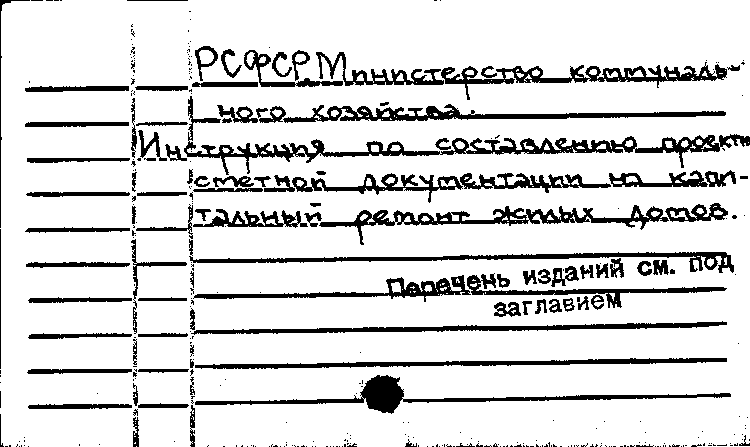 РСФСР Министерство коммуналь-
ного хозяйства.
Инструкция по составлению проектн
сметной документации на капи-
тальный ремонт жилых домов.
Перечень изданий см. под
заглавием